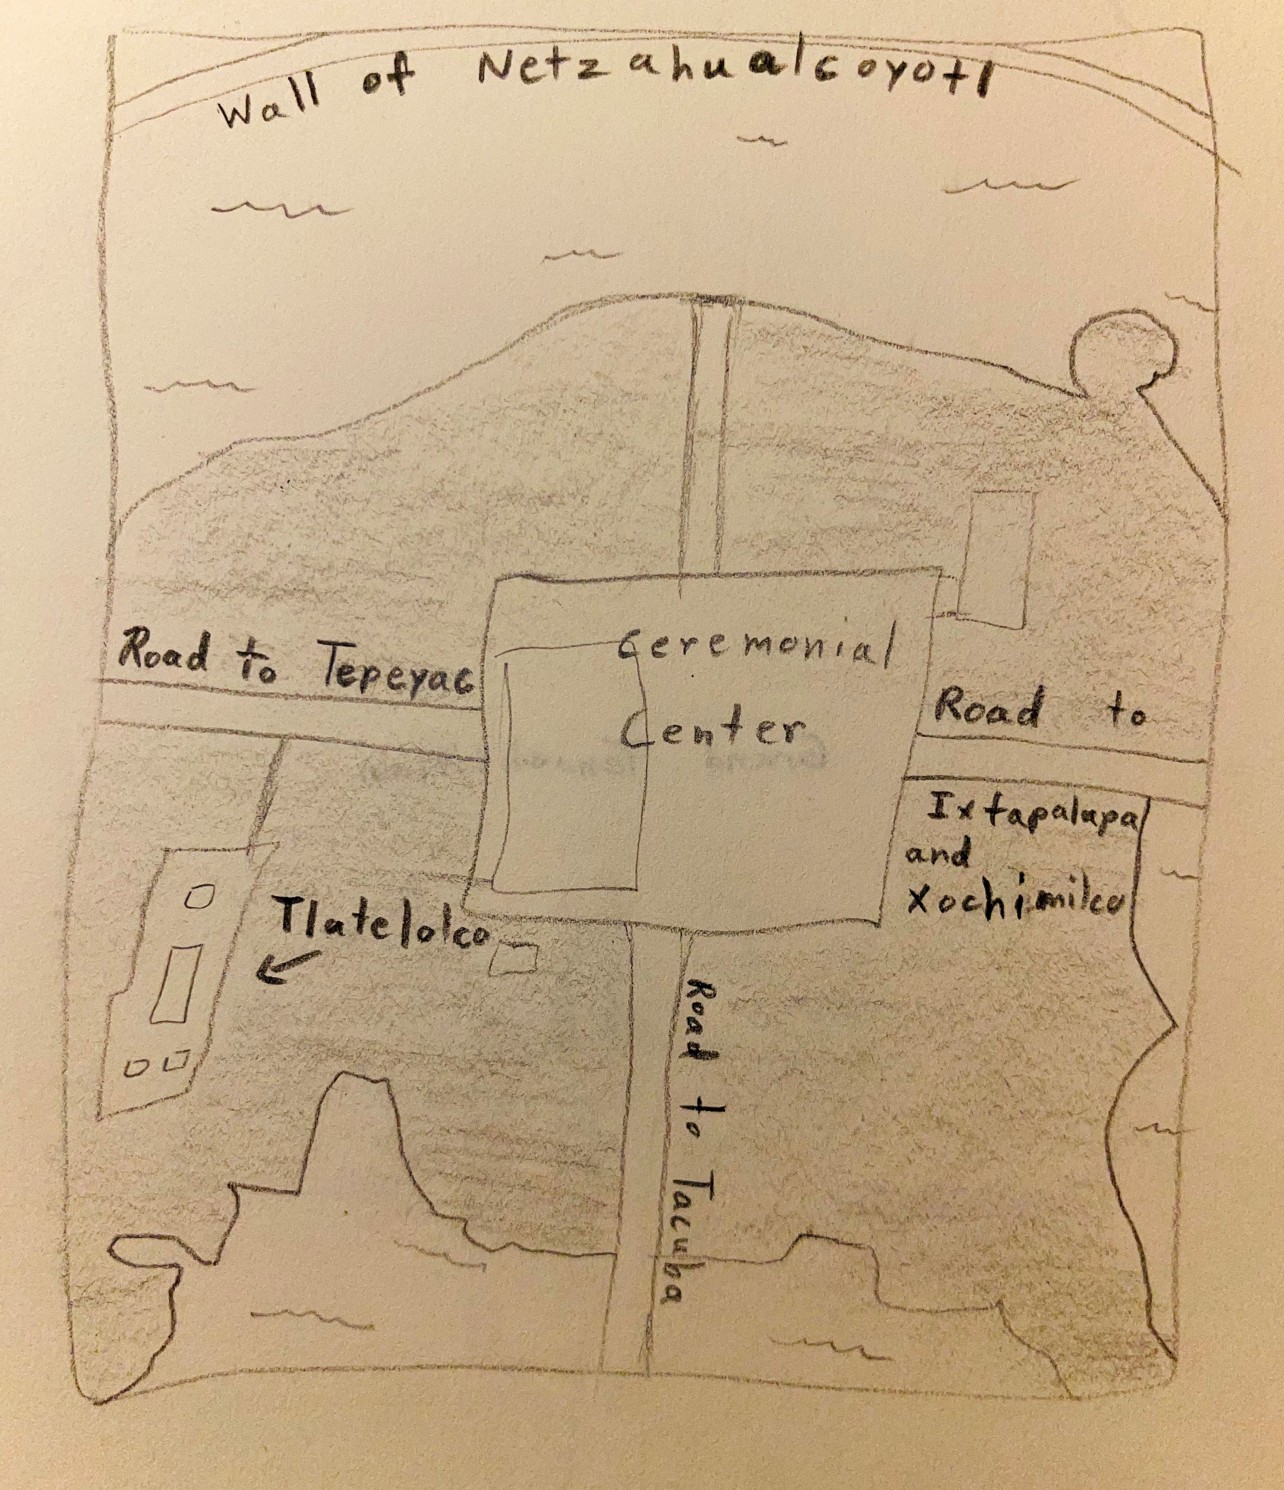 Wall of Netzahualcoyotl
Road to Tepeyac
Ceremonial
Center
Road to
Ixtapalapa
and
Xochimilco
Tlatelolco
Road to Tacuba